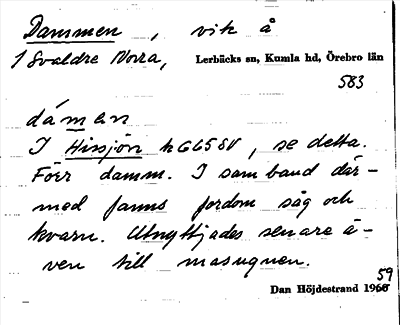 Dammen, vik å
1 Svaldre Norra, Lerbäcks sn, Kumla hd, Örebro län
583
dámen
I Hissjön h GG5 SV, se detta.
Förr damm. I samband där-
med fanns fordom såg och
kvarn. Utnyttjades senare ä-
ven till masugnen.
59
Dan Höjdestrand 1966